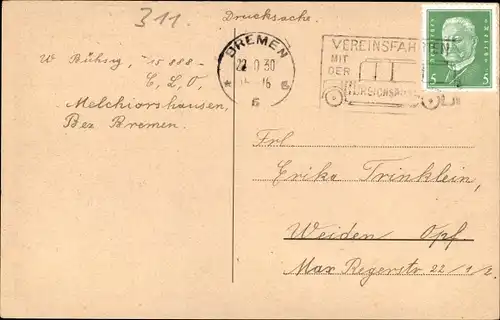 311.
Drucksache.
W Bühsig, - 15 888 -
C, L, O,
Melchiorshausen,
Bez Bremen.
BREMEN
30
5
VEREINSFAHRTEN
MIT
DER
REICHSPOST
5 5
Frl
Erika Trinklein,
Weiden Opf.
Max Regerstr. 22/1/2.